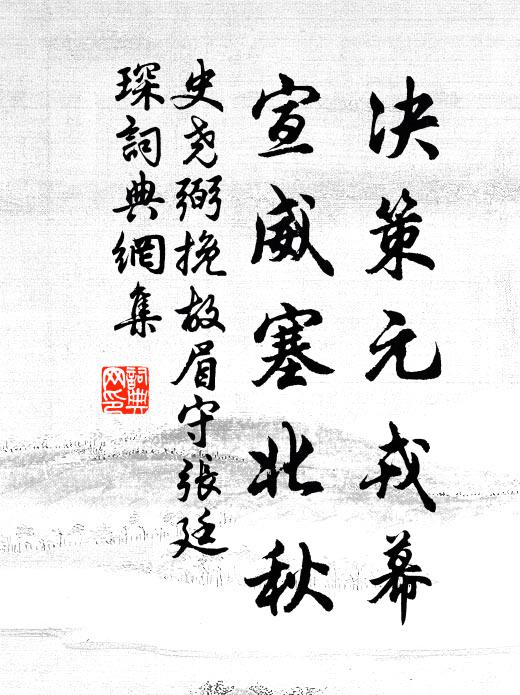 决策元戎幕
宣威塞北秋
史尧弼挽故眉守张廷
琛詞典網集
詞典
网印